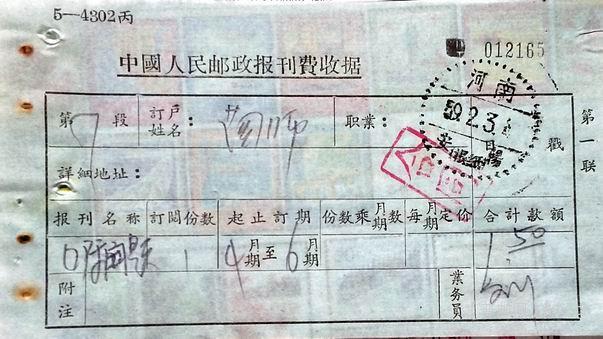 5—4302丙
中國人民邮政报刊費收据
012165
河南
59.2.3.
第 7 段 訂戶姓名：
职業：
戳
第一联
詳細地址：
报刊名称 訂閱份数 起止訂期 份数乘月期数 每月期定价 合計款額
1 4月期至6月期 1.50
附注
業务員